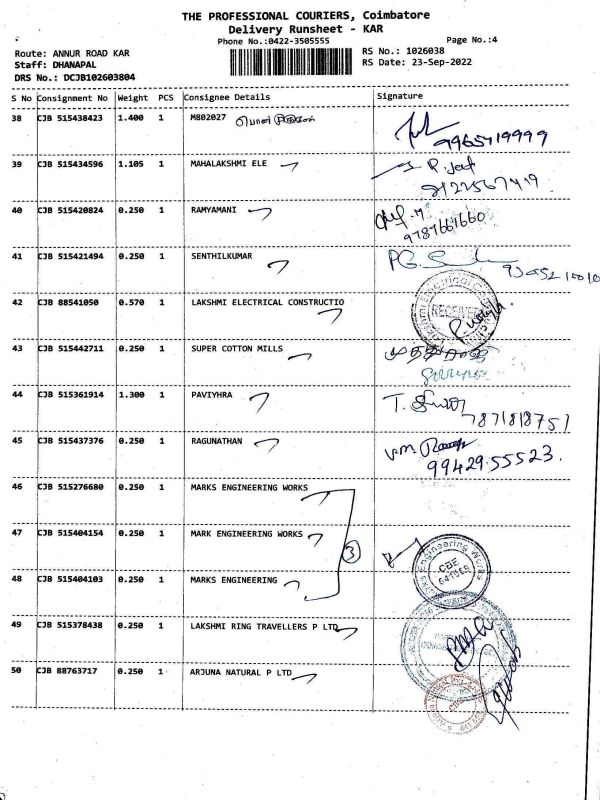 THE PROFESSIONAL COURIERS, Coimbatore
Delivery Runsheet - KAR
Phone No.:0422-3505555
Page No.:4
Route: ANNUR ROAD KAR
RS No.: 1026038
Staff: DHANAPAL
RS Date: 23-Sep-2022
DRS No.: DCJB102603804
S No Consignment No Weight PCS Consignee Details Signature
38 CJB 515438423 1.400 1 M802027
9965419999
39 CJB 515434596 1.105 1 MAHALAKSHMI ELE
40 CJB 515420824 0.250 1 RAMYAMANI
9787661660
41 CJB 515421494 0.250 1 SENTHILKUMAR
42 CJB 88541050 0.570 1 LAKSHMI ELECTRICAL CONSTRUCTIO
RECEIVED
43 CJB 515442711 0.250 1 SUPER COTTON MILLS
44 CJB 515361914 1.300 1 PAVIYHRA
7871818751
45 CJB 515437376 0.250 1 RAGUNATHAN
99429.55523.
46 CJB 515276680 0.250 1 MARKS ENGINEERING WORKS
47 CJB 515404154 0.250 1 MARK ENGINEERING WORKS
3
48 CJB 515404103 0.250 1 MARKS ENGINEERING
Engineering Works
CBE
49 CJB 515378438 0.250 1 LAKSHMI RING TRAVELLERS P LTD
50 CJB 88763717 0.250 1 ARJUNA NATURAL P LTD